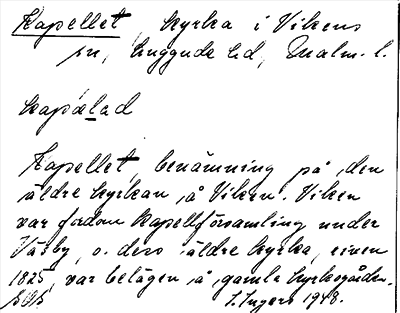 Kapellet kyrka i Vikens
sn, Luggude hd, Malm. l.
kapälad
Kapellet, benämning på den
äldre kyrkan å Viken. Viken
var fordom kapellförsamling under
Väsby, o. dess äldre kyrka, riven
1825, var belägen å gamla kyrkogården.
I. Ingers 1948.